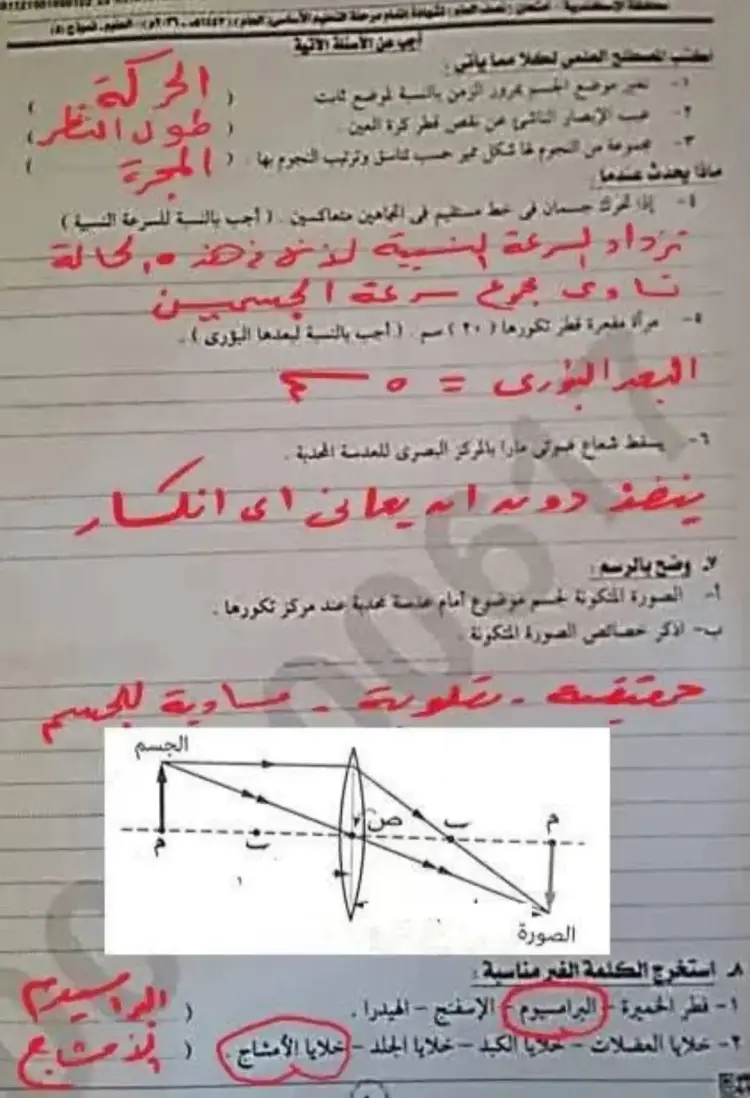 محافظة الإسكندرية - امتحان
أجب عن الأسئلة الآتية
اكتب المصطلح العلمي لكلا مما يأتي :
١- تغير موضع الجسم بمرور الزمن بالنسبة لموضع ثابت ( الحركة )
٢- عيب الإبصار الناشئ عن نقص قطر كرة العين . ( طول النظر )
٣- مجموعة من النجوم لها شكل مميز حسب تناسق وترتيب النجوم بها . ( المجرة )
ماذا يحدث عندما :
٤- إذا تحرك جسمان فى خط مستقيم فى اتجاهين متعاكسين . ( أجب بالنسبة للسرعة النسبية )
تزداد السرعة النسبية لأنه فى هذه الحالة
تساوى مجموع سرعة الجسمين
٥- مرآة مقعرة قطر تكورها ( ٢٠ ) سم . ( أجب بالنسبة لبعدها البؤرى ) .
البعد البؤرى = ٥ سم
٦- يسقط شعاع ضوئى مارا بالمركز البصرى للعدسة المحدبة .
ينفذ دون ان يعانى اى انكسار
٧. وضح بالرسم :
أ- الصورة المتكونة لجسم موضوع أمام عدسة محدبة عند مركز تكورها .
ب- اذكر خصائص الصورة المتكونة .
حقيقية - مقلوبة - مساوية للجسم
الجسم
ص
م ب ب م
الصورة
٨. استخرج الكلمة الغير مناسبة :
١- فطر الخميرة - البراميوم - الإسفنج - الهيدرا . ( البراسيوم
٢- خلايا العضلات - خلايا الكبد - خلايا الجلد - خلايا الأمشاج . ( الأمشاج